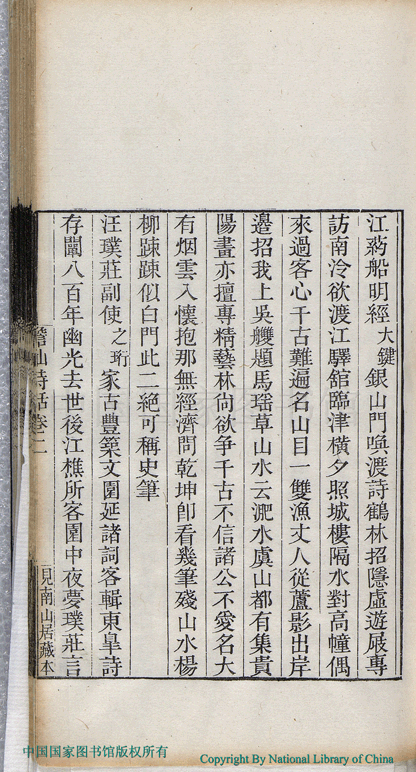 江药船明經大鍵銀山門喚渡詩鶴林招隱虛遊屐專
訪南泠欲渡江驛舘臨津橫夕照城樓隔水對高幢偶
來過客心千古難遍名山目一雙漁丈人從蘆影出岸
邊招我上吳艭題馬瑶草山水云淝水虞山都有集貴
陽畫亦擅專精藝林尙欲爭千古不信諸公不愛名大
有烟雲入懷抱那無經濟問乾坤卽看幾筆殘山水楊
柳踈踈似白門此二絶可稱史筆
汪璞莊副使之珩家古豐築文園延諸詞客輯東皐詩
存闡八百年幽光去世後江樵所客園中夜夢璞莊言
詹山詩話卷二
見南山居藏本
中国国家图书馆版权所有
Copyright By National Library of China